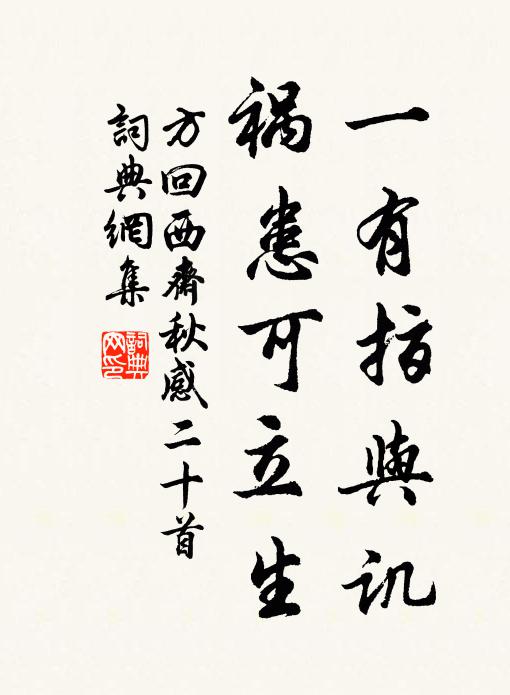 一有指與訊
禍患可立生
方回西齋秋感二十首
詞典網集
詞典網印